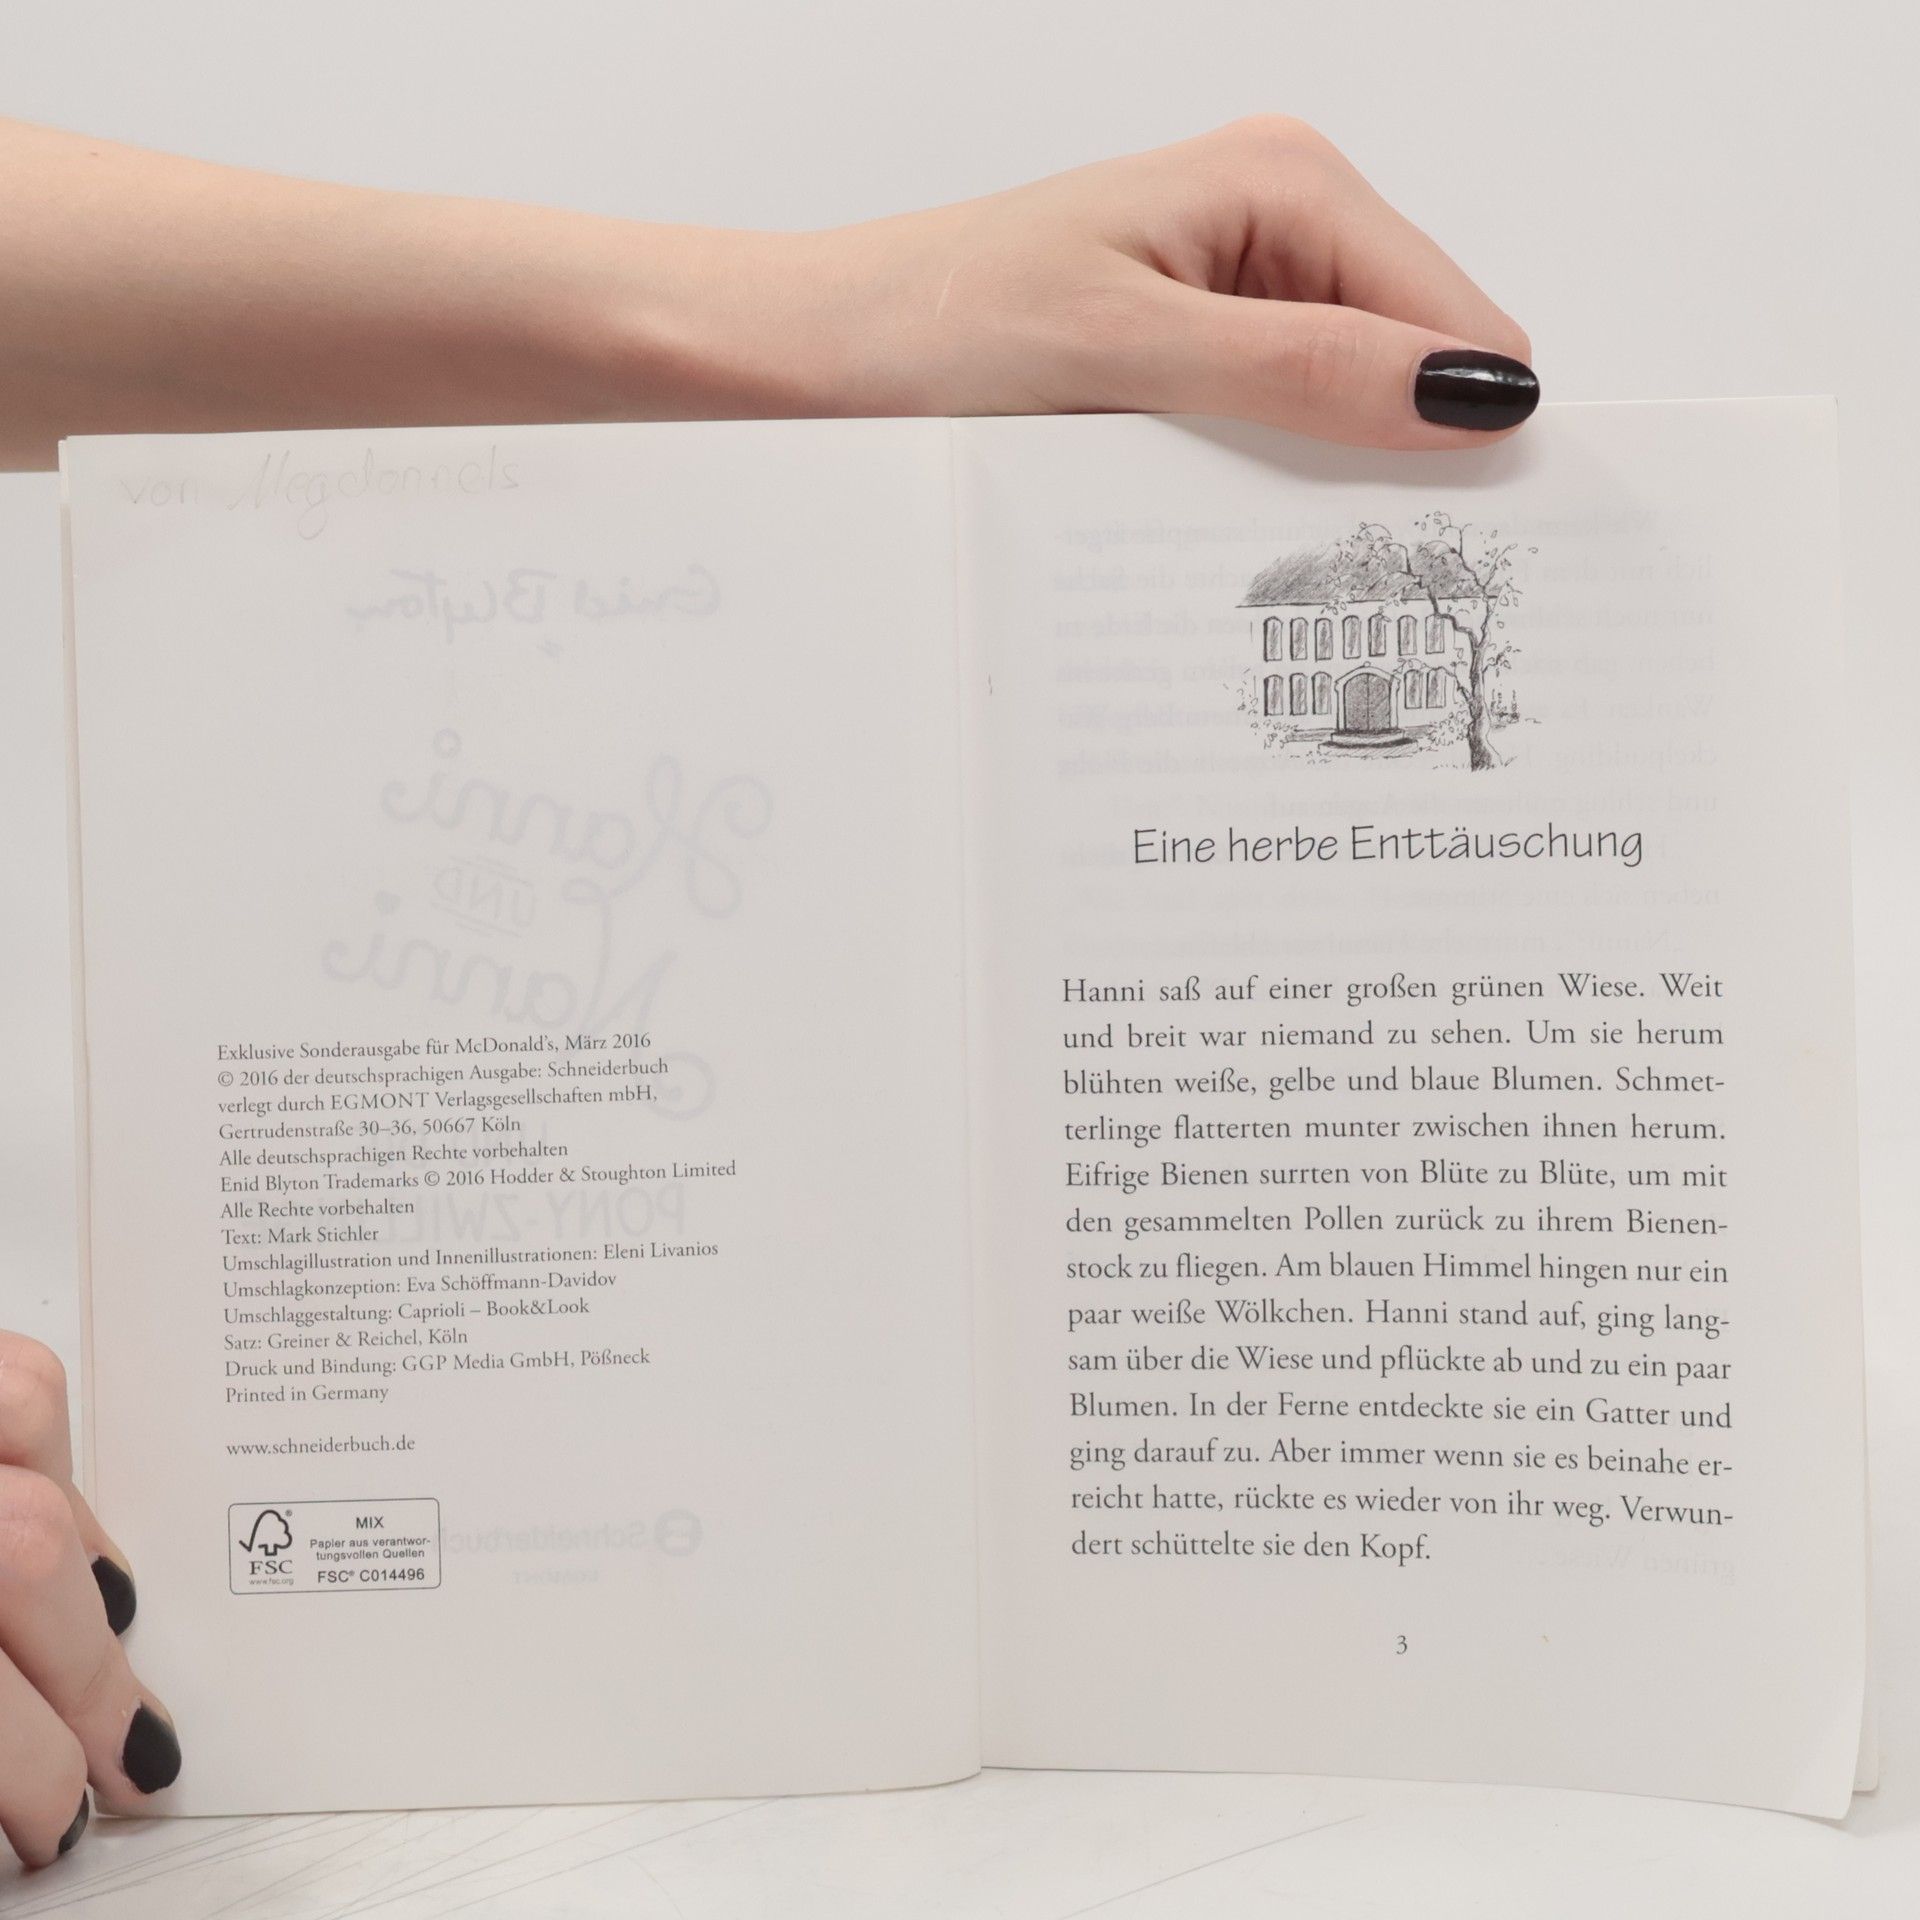 von Megdonnels
Exklusive Sonderausgabe für McDonald's, März 2016
© 2016 der deutschsprachigen Ausgabe: Schneiderbuch
verlegt durch EGMONT Verlagsgesellschaften mbH,
Gertrudenstraße 30–36, 50667 Köln
Alle deutschsprachigen Rechte vorbehalten
Enid Blyton Trademarks © 2016 Hodder & Stoughton Limited
Alle Rechte vorbehalten
Text: Mark Stichler
Umschlagillustration und Innenillustrationen: Eleni Livanios
Umschlagkonzeption: Eva Schöffmann-Davidov
Umschlaggestaltung: Caprioli – Book&Look
Satz: Greiner & Reichel, Köln
Druck und Bindung: GGP Media GmbH, Pößneck
Printed in Germany
www.schneiderbuch.de
FSC
www.fsc.org
MIX
Papier aus verantwor-
tungsvollen Quellen
FSC® C014496
Eine herbe Enttäuschung
Hanni saß auf einer großen grünen Wiese. Weit
und breit war niemand zu sehen. Um sie herum
blühten weiße, gelbe und blaue Blumen. Schmet-
terlinge flatterten munter zwischen ihnen herum.
Eifrige Bienen surrten von Blüte zu Blüte, um mit
den gesammelten Pollen zurück zu ihrem Bienen-
stock zu fliegen. Am blauen Himmel hingen nur ein
paar weiße Wölkchen. Hanni stand auf, ging lang-
sam über die Wiese und pflückte ab und zu ein paar
Blumen. In der Ferne entdeckte sie ein Gatter und
ging darauf zu. Aber immer wenn sie es beinahe er-
reicht hatte, rückte es wieder von ihr weg. Verwun-
dert schüttelte sie den Kopf.
3